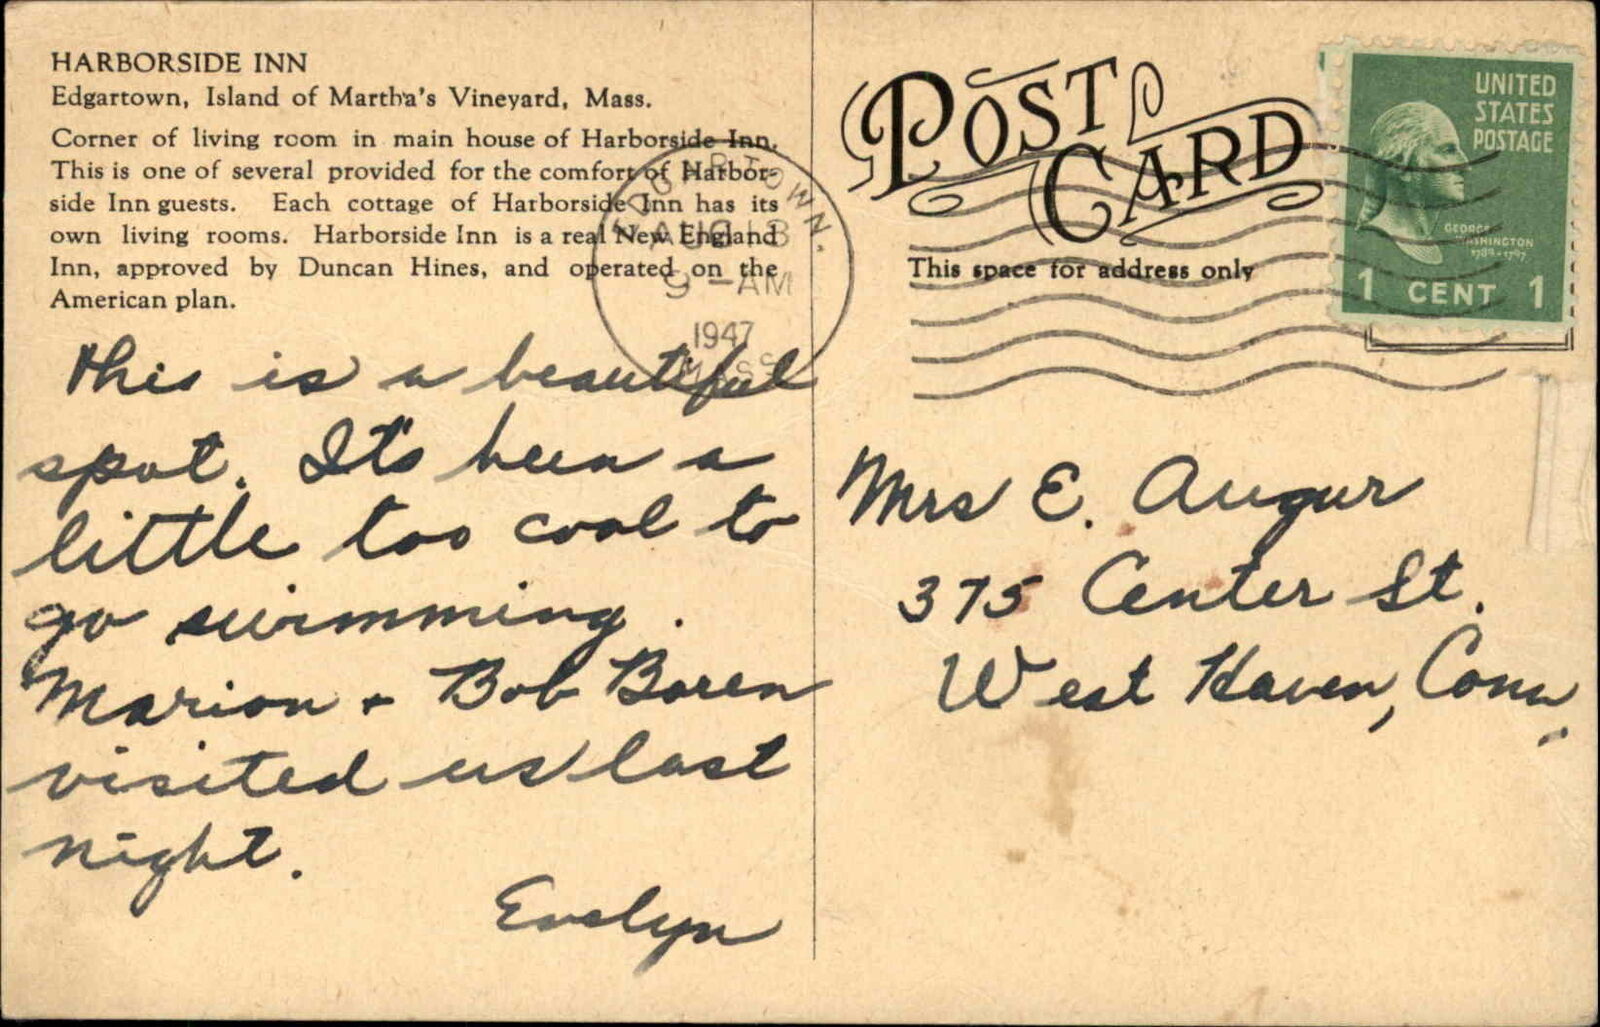 HARBORSIDE INN
Edgartown, Island of Martha's Vineyard, Mass.
Corner of living room in main house of Harborside Inn.
This is one of several provided for the comfort of Harbor-
side Inn guests. Each cottage of Harborside Inn has its
own living rooms. Harborside Inn is a real New England
Inn, approved by Duncan Hines, and operated on the
American plan.
This is a beautiful
spot. It's been a
little too cool to
go swimming.
Marion + Bob Boren
visited us last
night.
Evelyn
EDGARTOWN.
AUG 13
9 - AM
1947
MASS
POST CARD
This space for address only
UNITED
STATES
POSTAGE
GEORGE
WASHINGTON
1789-1797
1 CENT 1
Mrs E. Augur
375 Center St.
West Haven, Conn.